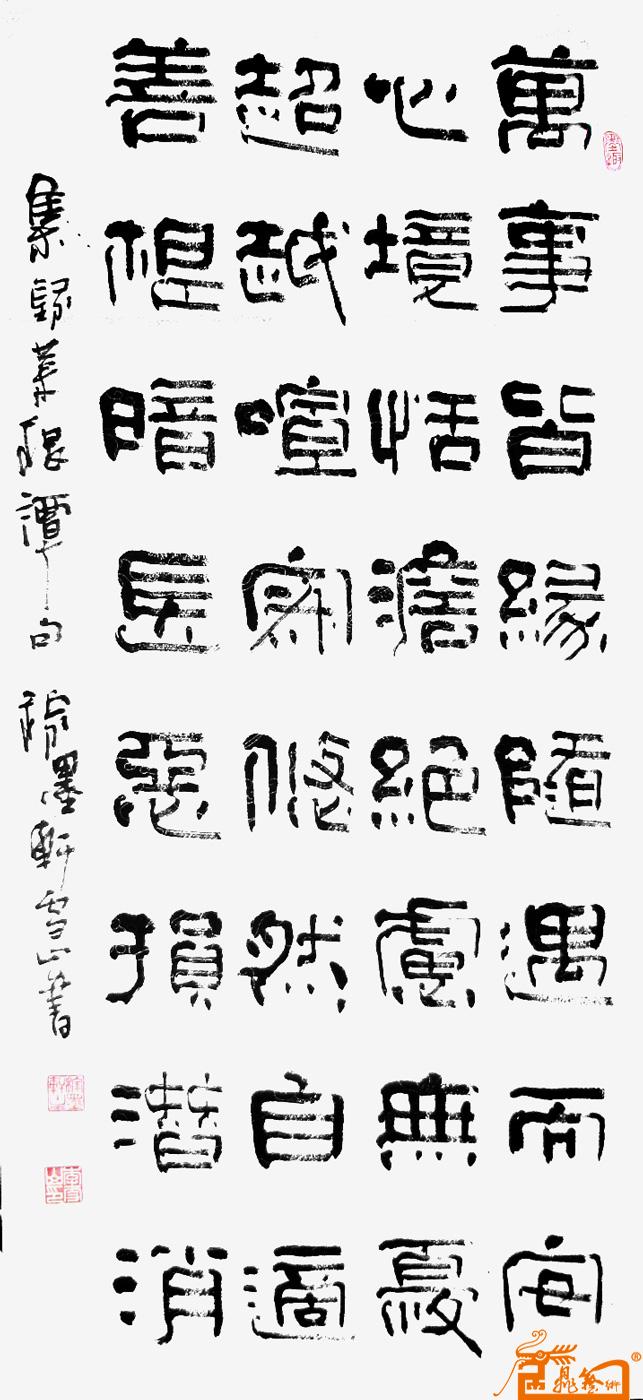 萬事皆緣隨遇而安
心境恬澹絕慮無憂
超越喧寂悠然自適
善根暗長惡損潛消
集錄菜根譚句 墨軒雲山書